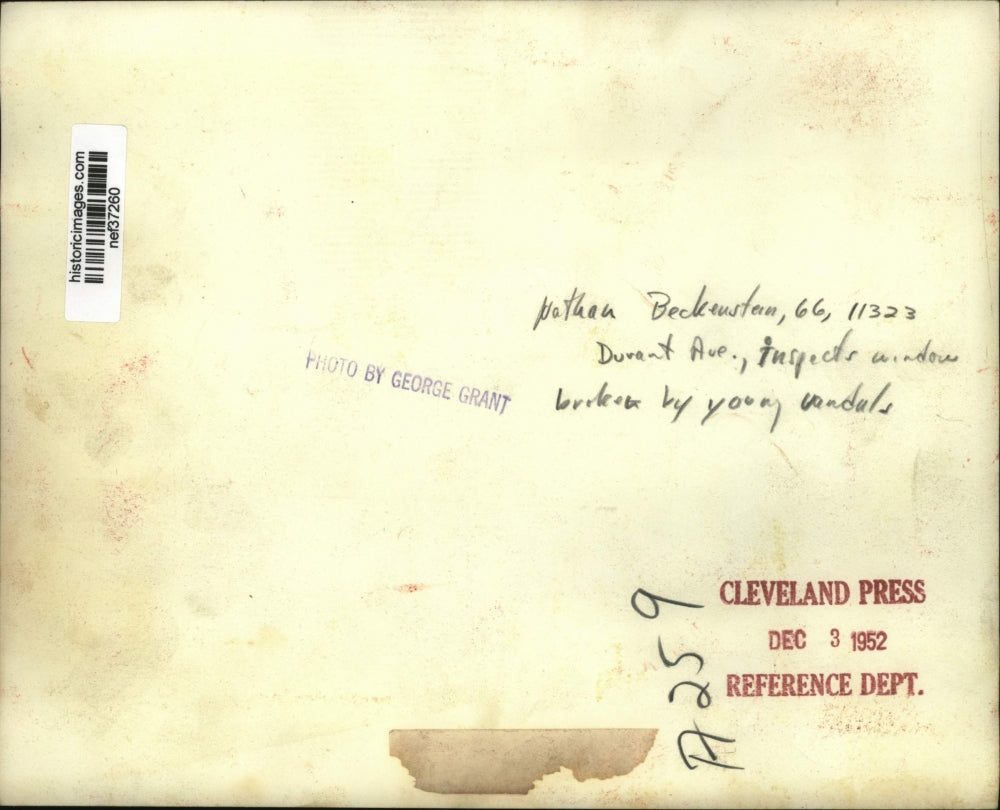 historicimages.com
nef37260
Nathan Beckenstein, 66, 11323
Durant Ave., inspects window
broken by young vandals
PHOTO BY GEORGE GRANT
A259
CLEVELAND PRESS
DEC 3 1952
REFERENCE DEPT.